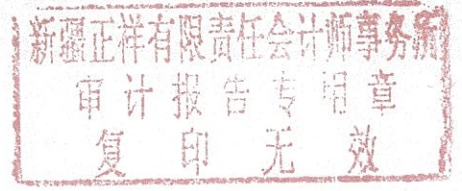 新疆正祥有限責任会计师事务所
审计报告专用章
复印无效